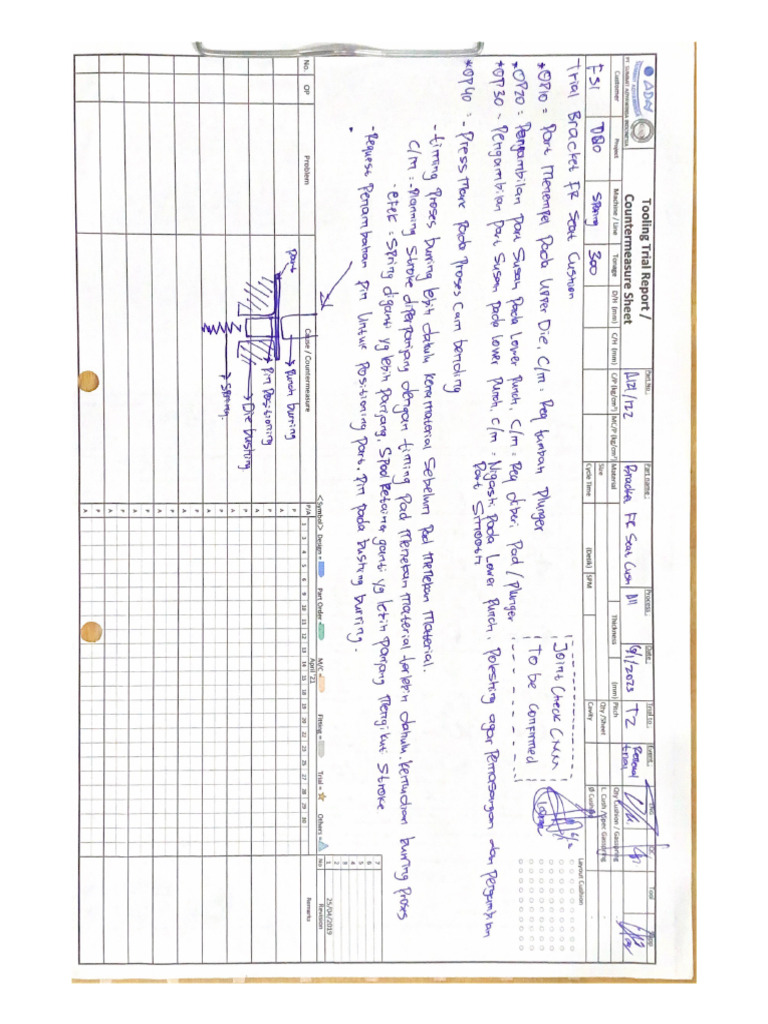 ADAI
PT. SUMMIT ADYAWINSA INDONESIA
Tooling Trial Report /
Countermeasure Sheet
Part No.
Part name
Process
Date
Trial to
Event
Bracket FR Seat Cush
D11
6/1/2023
T2
Renewal
trial
Tool
Customer
Project
Machine / Line
Tonage
D/N (mm)
C/H (mm)
C/P (kg/cm²)
MC/P (kg/cm²)
Material
Thickness
(mm)
Pitch
Qty Cushion / Gasspring
FSI
300
Size
Qty /Sheet
Cycle Time
(Detik)
SPM
Cavity
Ø Cushion
Layout Cushion
Trial Bracket FR Seat Cushion
Joint Check CMM
To be confirmed
*OP10 = Part Menempel Pada Upper Die, C/m : Req tambah Plunger
*OP20 = Pengambilan part Susah Pada Lower Punch, C/m = Req diberi Pad / Plunger
*OP30 - Pengambilan Part Susah pada Lower Punch, C/m = Nigashi Pada Lower Punch, Poleshing agar Pemasangan dan Pengambilan
Part Smooth
*OP40 : - Press Mark Pada Proses Cam bending
- timing Proses burring lebih dahulu kena material Sebelum Pad menekan Material.
C/m : - Planning Stroke diperpanjang dengan timing Pad Menekan Material terlebih dahulu. Kemudian burring Proses
- efek : Spring diganti yg lebih Panjang, Spool Retainer ganti yg lebih Panjang Mengikuti Stroke
- Request Penambahan Pin Untuk Positioning Part. Pin Pada bushing burring.
No.
OP
Problem
Cause / Countermeasure
part
Punch burring
Pin Positioning
Die bushing
Spring.
<Symbol>
Design =
Part Order =
M/C =
Fitting =
Trial =
Others =
P/A
April '21
Remarks
1 3 4 5 6 9 10 11 12 13 14 15 18 19 20 22 23 25 26 27 28 29 30
P
A
P
A
P
A
P
A
P
A
P
A
P
A
P
A
7
6
5
4
3
2
1
25/04/2019
No
Revision